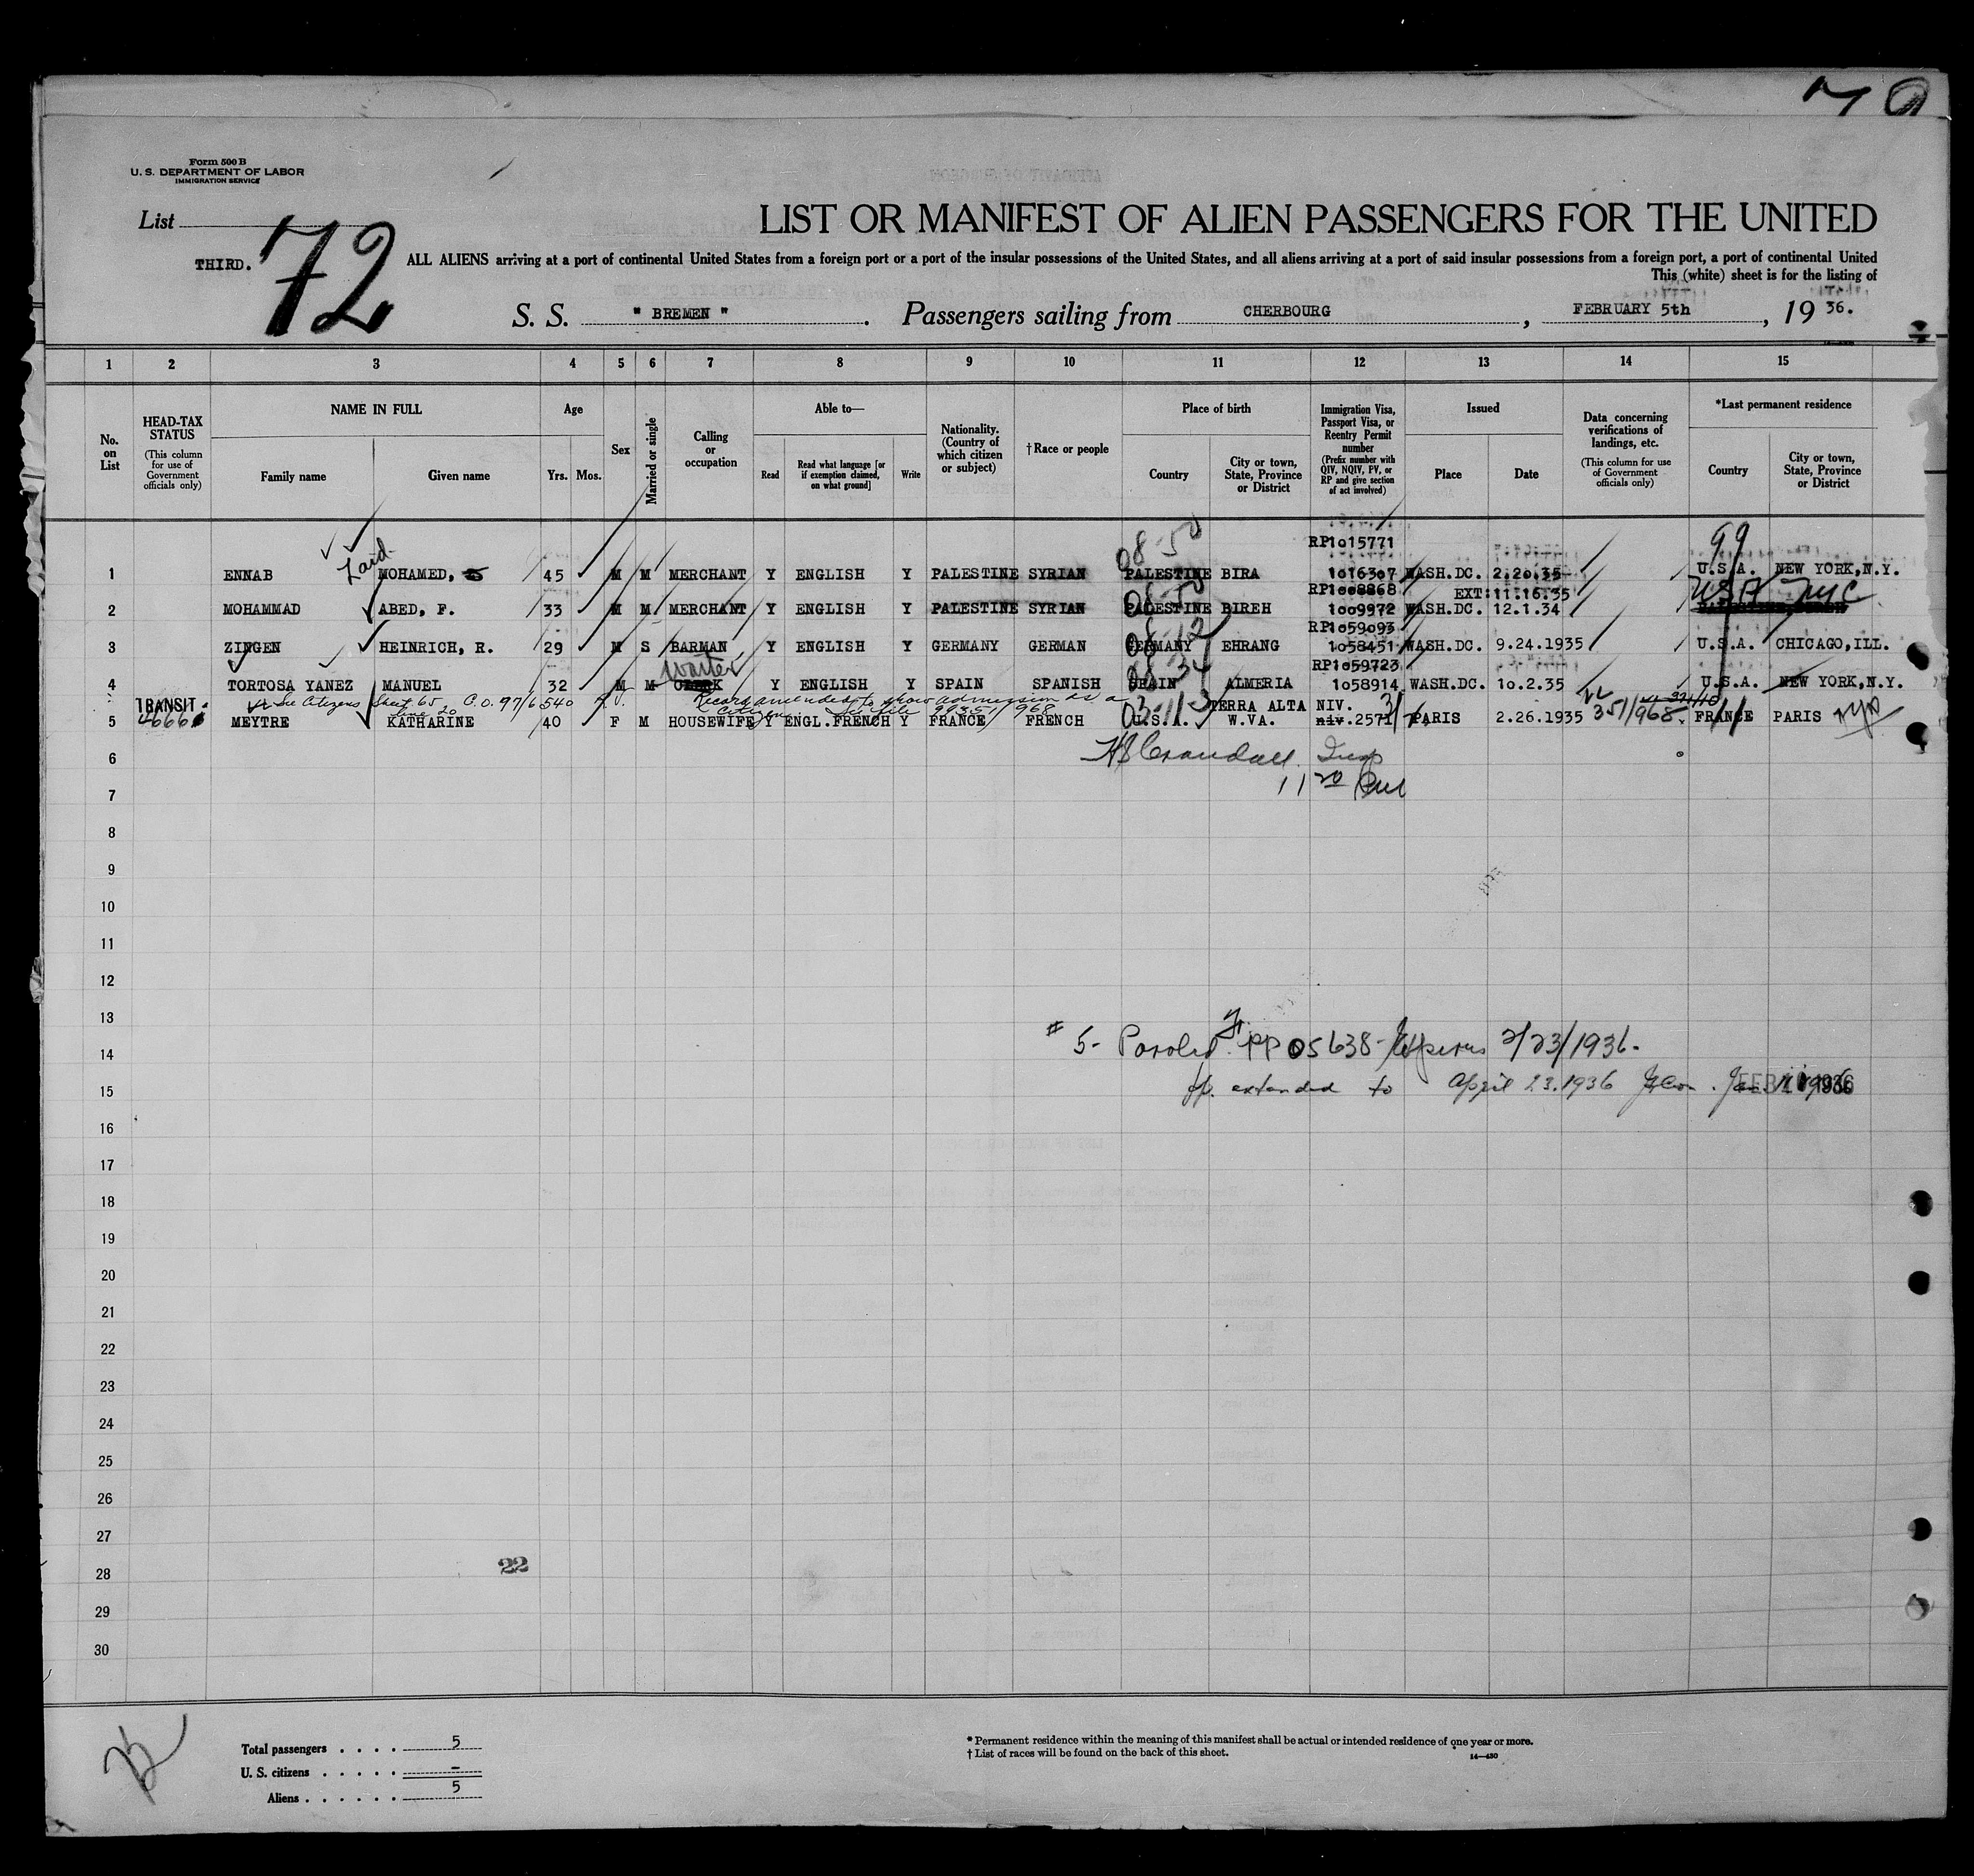 Form 500 B
U. S. DEPARTMENT OF LABOR
IMMIGRATION SERVICE
List
72
THIRD.
LIST OR MANIFEST OF ALIEN PASSENGERS FOR THE UNITED
ALL ALIENS arriving at a port of continental United States from a foreign port or a port of the insular possessions of the United States, and all aliens arriving at a port of said insular possessions from a foreign port, a port of continental United
This (white) sheet is for the listing of
S. S. " BREMEN " . Passengers sailing from CHERBOURG , FEBRUARY 5th , 19 36.
1 2 3 4 5 6 7 8 9 10 11 12 13 14 15
No. on List
HEAD-TAX STATUS
(This column for use of Government officials only)
NAME IN FULL
Family name Given name
Age
Yrs. Mos.
Sex
Married or single
Calling or occupation
Able to—
Read
Read what language [or if exemption claimed, on what ground]
Write
Nationality. (Country of which citizen or subject)
† Race or people
Place of birth
Country
City or town, State, Province or District
Immigration Visa, Passport Visa, or Reentry Permit number
(Prefix number with QIV, NQIV, PV, or RP and give section of act involved)
Issued
Place Date
Data concerning verifications of landings, etc.
(This column for use of Government officials only)
*Last permanent residence
Country
City or town, State, Province or District
99
RP1015771
1 ENNAB MOHAMED, 45 M M MERCHANT Y ENGLISH Y PALESTINE SYRIAN PALESTINE BIRA 1016307 WASH.DC. 2.20.35 U.S.A. NEW YORK,N.Y.
RP1008868 EXT:11.16.35 USA NYC
2 MOHAMMAD ABED, F. 33 M M MERCHANT Y ENGLISH Y PALESTINE SYRIAN PALESTINE BIREH 1009972 WASH.DC. 12.1.34
RP1059093
3 ZINGEN HEINRICH, R. 29 M S BARMAN Y ENGLISH Y GERMANY GERMAN GERMANY EHRANG 1058451 WASH.DC. 9.24.1935 U.S.A. CHICAGO,ILL.
Waiter RP1059723
4 TORTOSA YANEZ MANUEL 32 M M CLERK Y ENGLISH Y SPAIN SPANISH SPAIN ALMERIA 1058914 WASH.DC. 10.2.35 U.S.A. NEW YORK,N.Y.
See Citizens Sheet 65 line 20 C.O. 97/6540
Record amended to show admission as a citizen See file 99351/968
TRANSIT. TERRA ALTA NIV.
5 MEYTRE KATHARINE 40 F M HOUSEWIFE Y ENGL.FRENCH Y FRANCE FRENCH U.S.A. W.VA. niv.2571 PARIS 2.26.1935 351/968 FRANCE PARIS
HS Crandall Insp
6
7
8
9
10
11
12
13
# 5- Paroled PP 05638- Expires 2/23/1936.
14
extended to April 23.1936
15
16
17
18
19
20
21
22
23
24
25
26
27
28
22
29
30
Total passengers . . . . 5
U. S. citizens . . . . . –
Aliens . . . . . . 5
* Permanent residence within the meaning of this manifest shall be actual or intended residence of one year or more.
† List of races will be found on the back of this sheet.
14—430